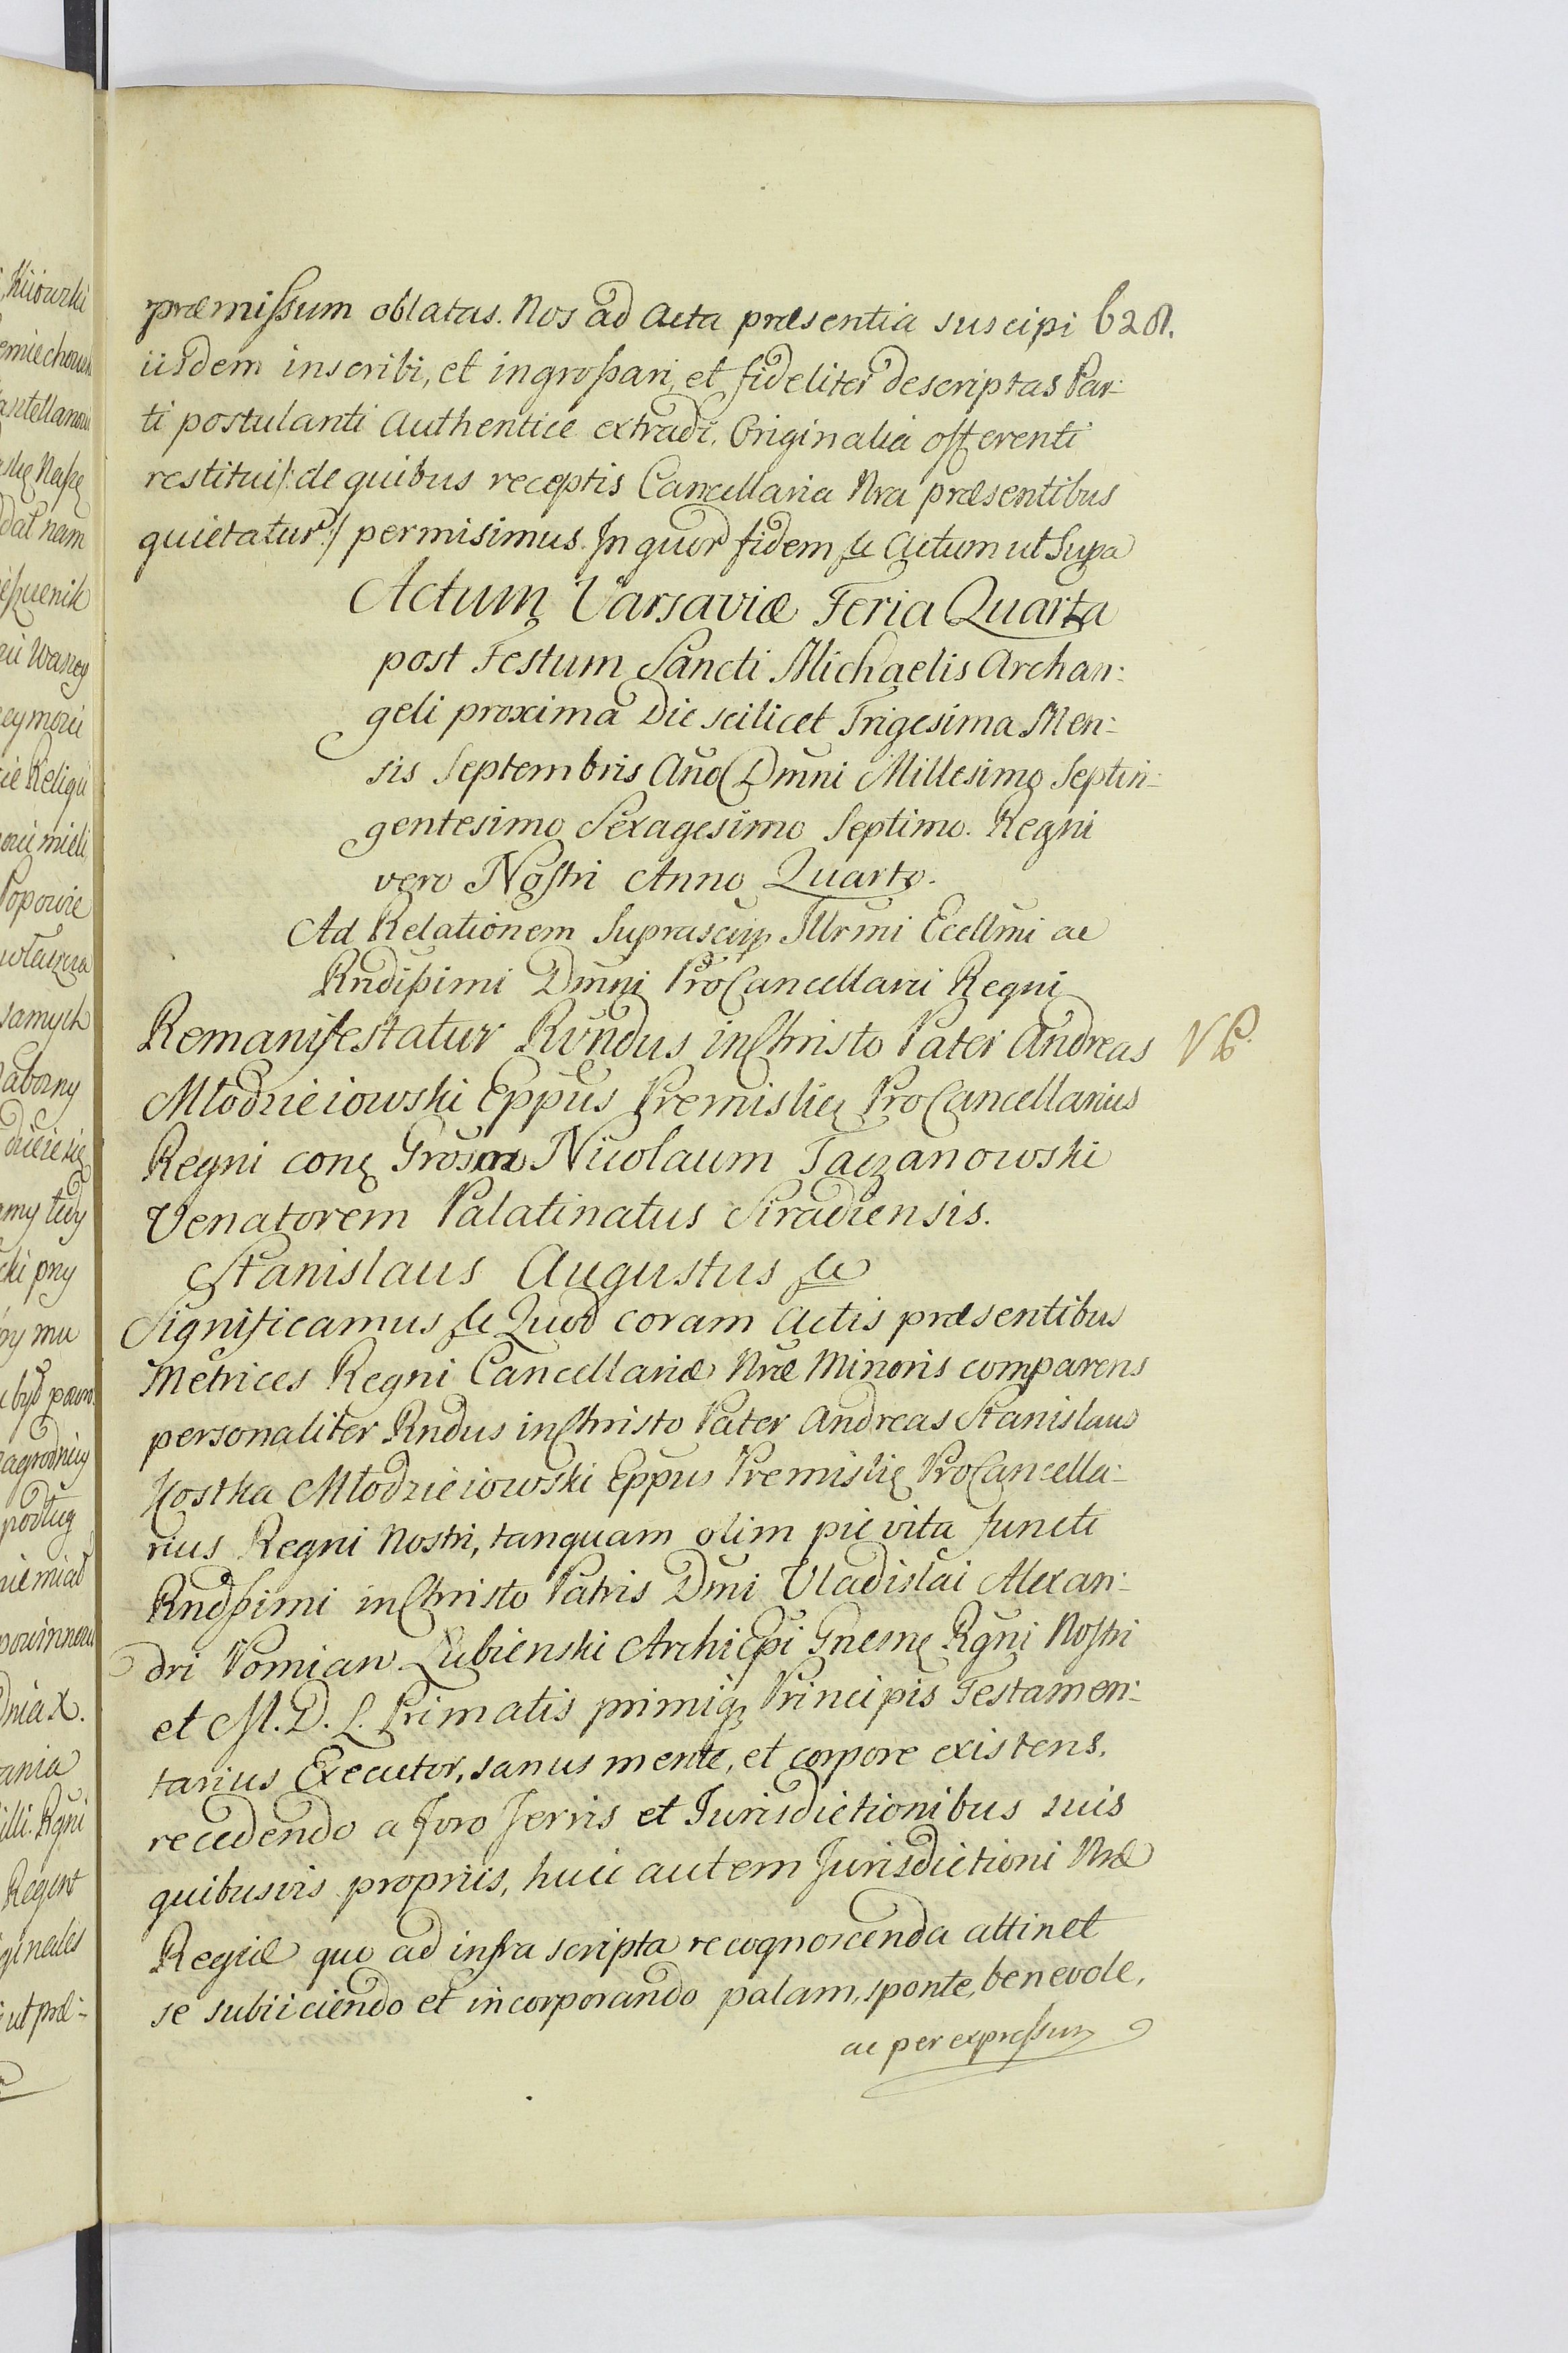 præmissum oblatas. Nos ad Acta præsentia suscipi 628.
iisdem inscribi, et ingrossari, et fideliter descriptas Par-
ti postulanti Authentice extradi, Originalia offerenti
restitui /: de quibus receptis Cancellaria Nra præsentibus
quietatur :/ permisimus. In quor fidem &c Actum ut Supa
Actum Varsaviæ Feria Quarta
post Festum Sancti Michaelis Archan:
geli proxima Die scilicet Trigesima Men:
sis Septembris Ano Dmni Millesimo Septin-
gentesimo Sexagesimo Septimo. Regni
vero Nostri Anno Quarto.
Ad Relationem Suprascrip Illrmi Ecellmi ac
Rndissimi Dmni ProCancellarii Regni
Remanifestatur Rvndus in Christo Pater Andreas NB.
Młodzieiowski Eppus Premislien ProCancellarius
Regni con Nicolaum Taczanowski
Venatorem Palatinatus Siradiensis.
Stanislaus Augustus &c
Significamus &c Quod coram Actis præsentibus
Metrices Regni Cancellariæ Nræ Minoris comparens
personaliter Rndus in Christo Pater Andreas Stanislaus
Kostka Młodzieiowski Eppus Premislien ProCancella-
rius Regni Nostri, tanquam olim pie vita functi
Rndssimi in Christo Patris Dmi Vladislai Alexan:
dri Pomian Lubienski Archiepi Gnesnen Rgni Nostri
et M. D. L. Primatis primiq Principis Testamen:
tarius Executor, sanus mente, et corpore existens,
recedendo a foro Terris et Iurisdictionibus suis
quibusvis propriis, huic autem Jurisdictioni Nræ
Regiæ quo ad infra scripta recognoscenda attinet
se subiiciendo et incorporando palam, sponte, benevole,
ac per expressum